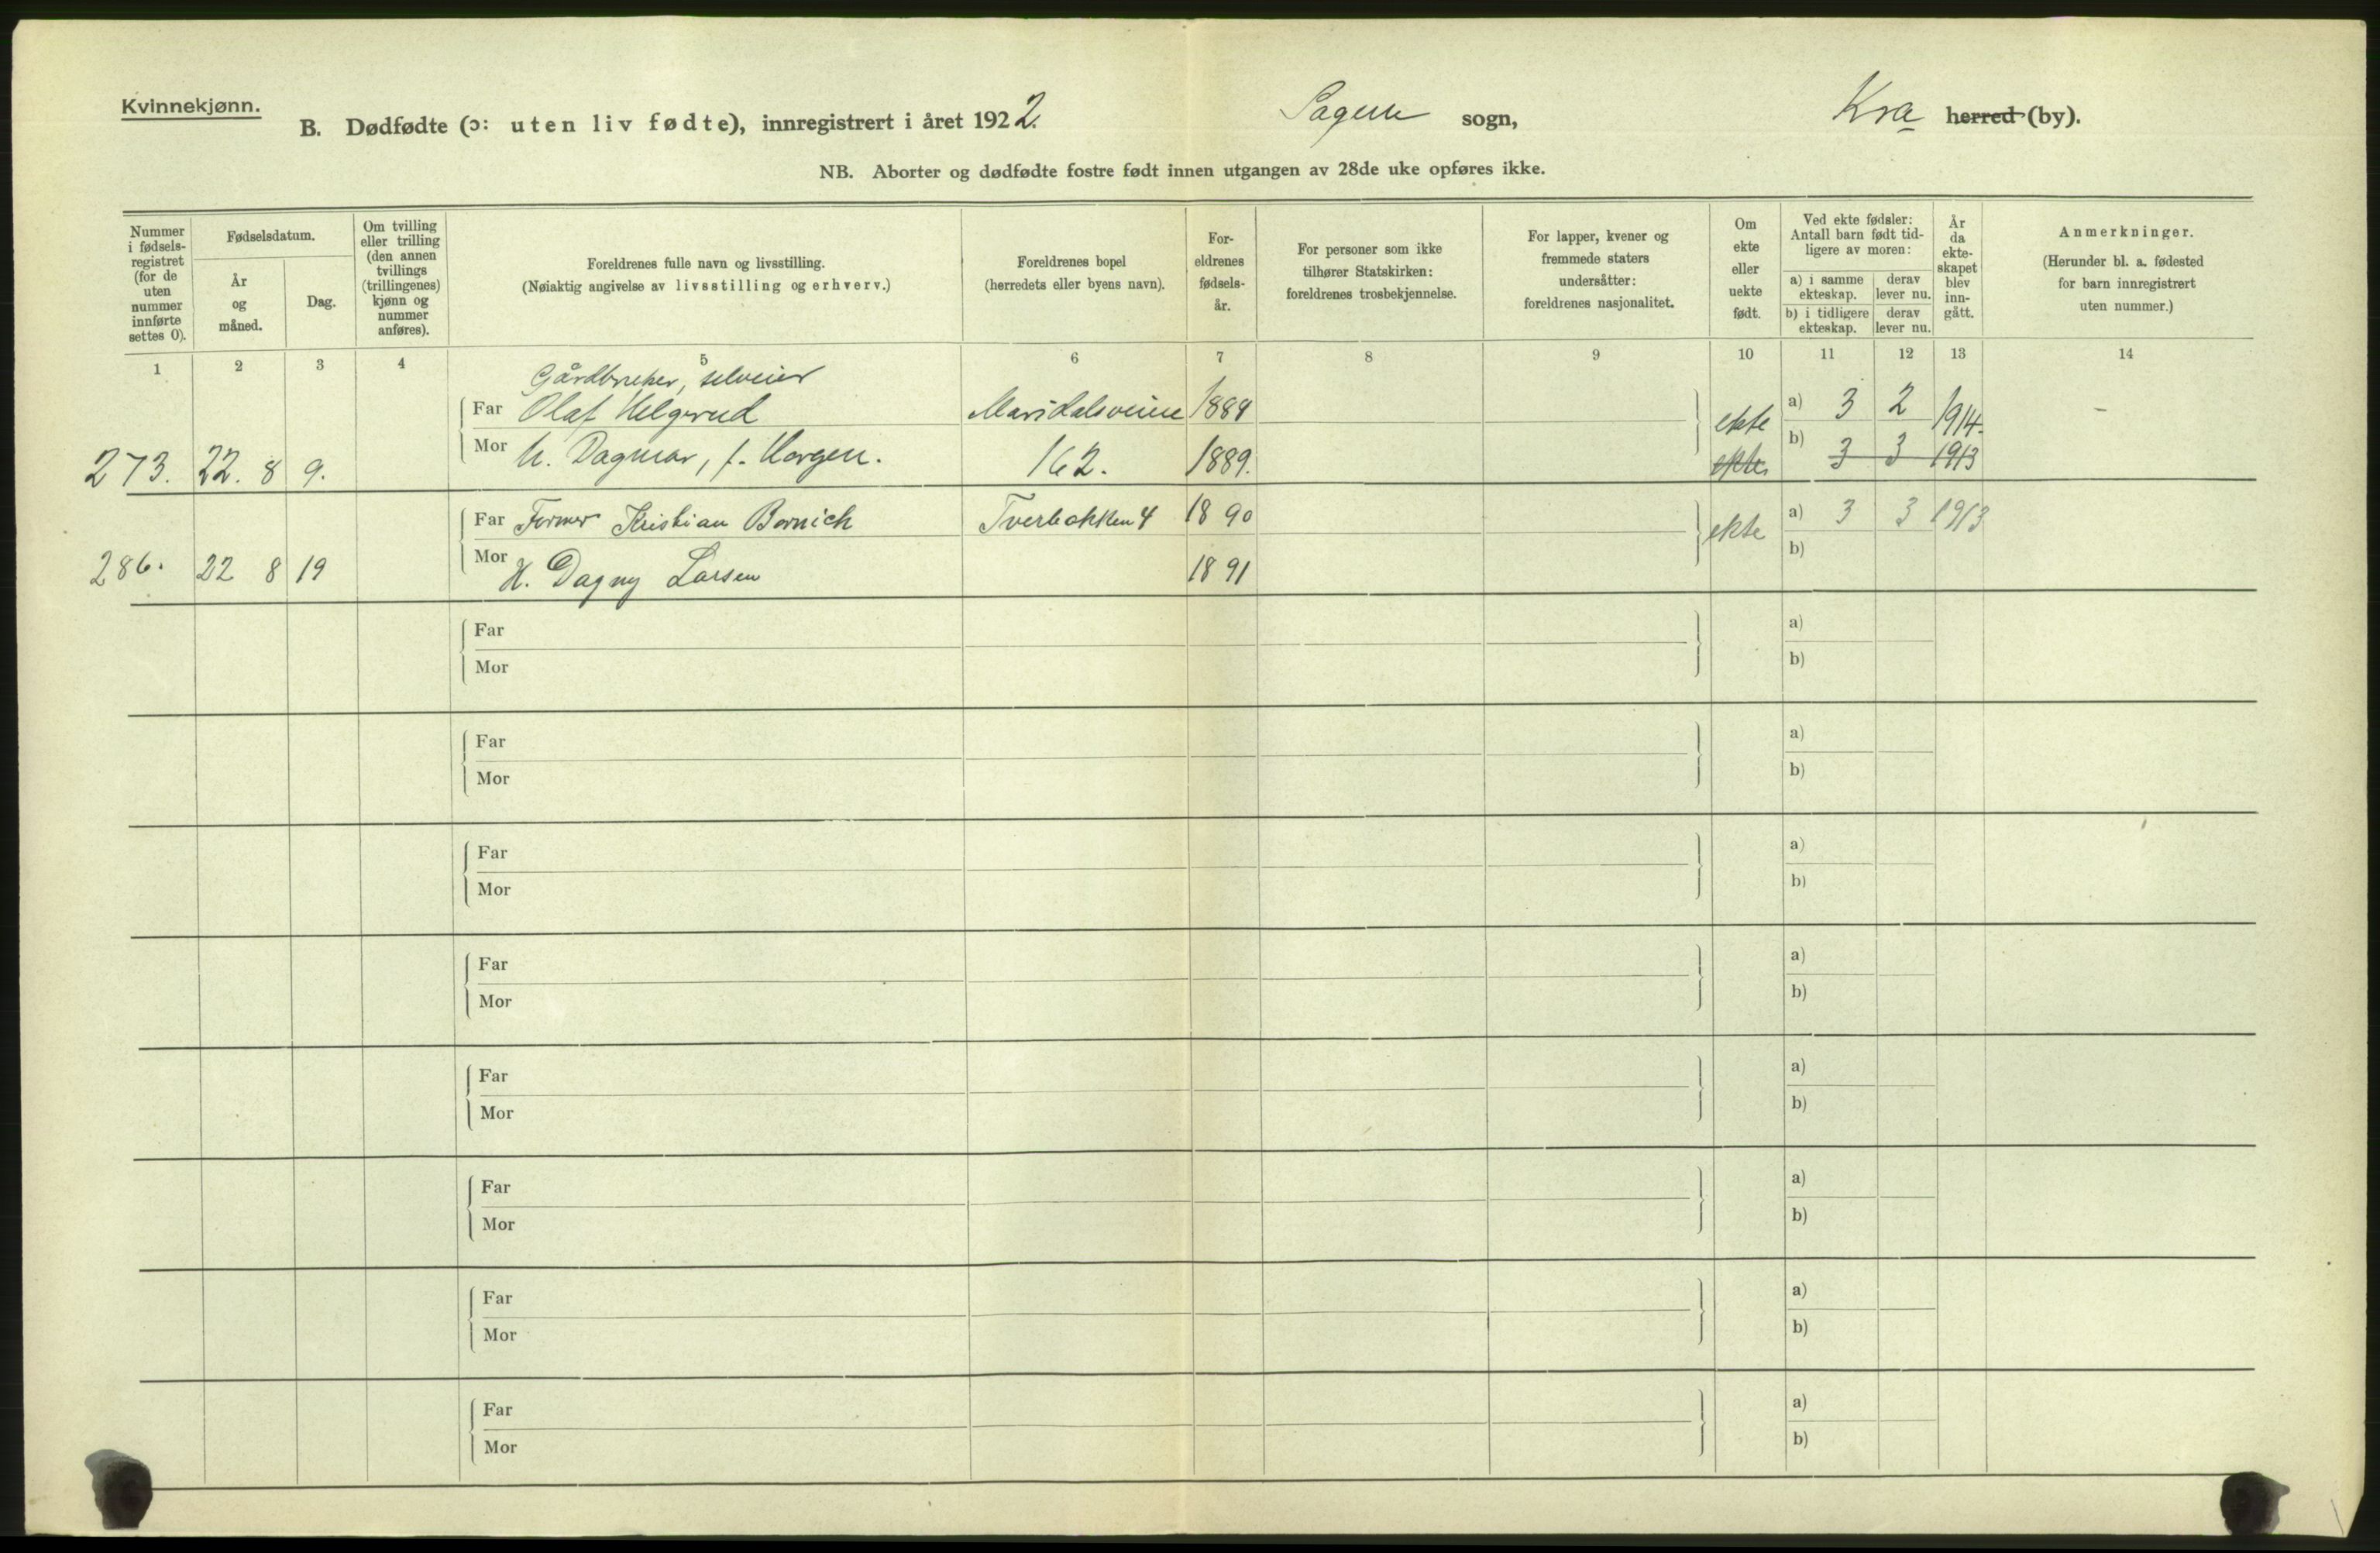 Kvinnekjønn.
B. Dødfødte (ɔ: uten liv fødte), innregistrert i året 1922. Sagene sogn, Kra herred (by).
NB. Aborter og dødfødte fostre født innen utgangen av 28de uke opføres ikke.
Nummer i fødsels-registret (for de uten nummer innførte settes 0).
Fødselsdatum.
År og måned.
Dag.
Om tvilling eller trilling (den annen tvillings (trillingenes) kjønn og nummer anføres).
Foreldrenes fulle navn og livsstilling.
(Nøiaktig angivelse av livsstilling og erhverv.)
Foreldrenes bopel
(herredets eller byens navn).
For-eldrenes fødsels-år.
For personer som ikke tilhører Statskirken: foreldrenes trosbekjennelse.
For lapper, kvener og fremmede staters undersåtter: foreldrenes nasjonalitet.
Om ekte eller uekte født.
Ved ekte fødsler: Antall barn født tid-ligere av moren:
a) i samme ekteskap. derav lever nu.
b) i tidligere ekteskap. derav lever nu.
År da ekte-skapet blev inn-gått.
Anmerkninger.
(Herunder bl. a. fødested for barn innregistrert uten nummer.)
1 2 3 4 5 6 7 8 9 10 11 12 13 14
Gårdbruker, selveier
Far Olaf Helgerud Maridalsveien 1884 ekte a) 3 2 1914. –
273. 22. 8 9. Mor h. Dagmar, f. Horgen. 162. 1889. ekte b) 3 3 1913
Far Former Kristian Bernich Tverbakken 4 1890 ekte a) 3 3 1913
286. 22 8 19 Mor H. Dagny Larsen 1891 b)
Far a)
Mor b)
Far a)
Mor b)
Far a)
Mor b)
Far a)
Mor b)
Far a)
Mor b)
Far a)
Mor b)
Far a)
Mor b)
Far a)
Mor b)